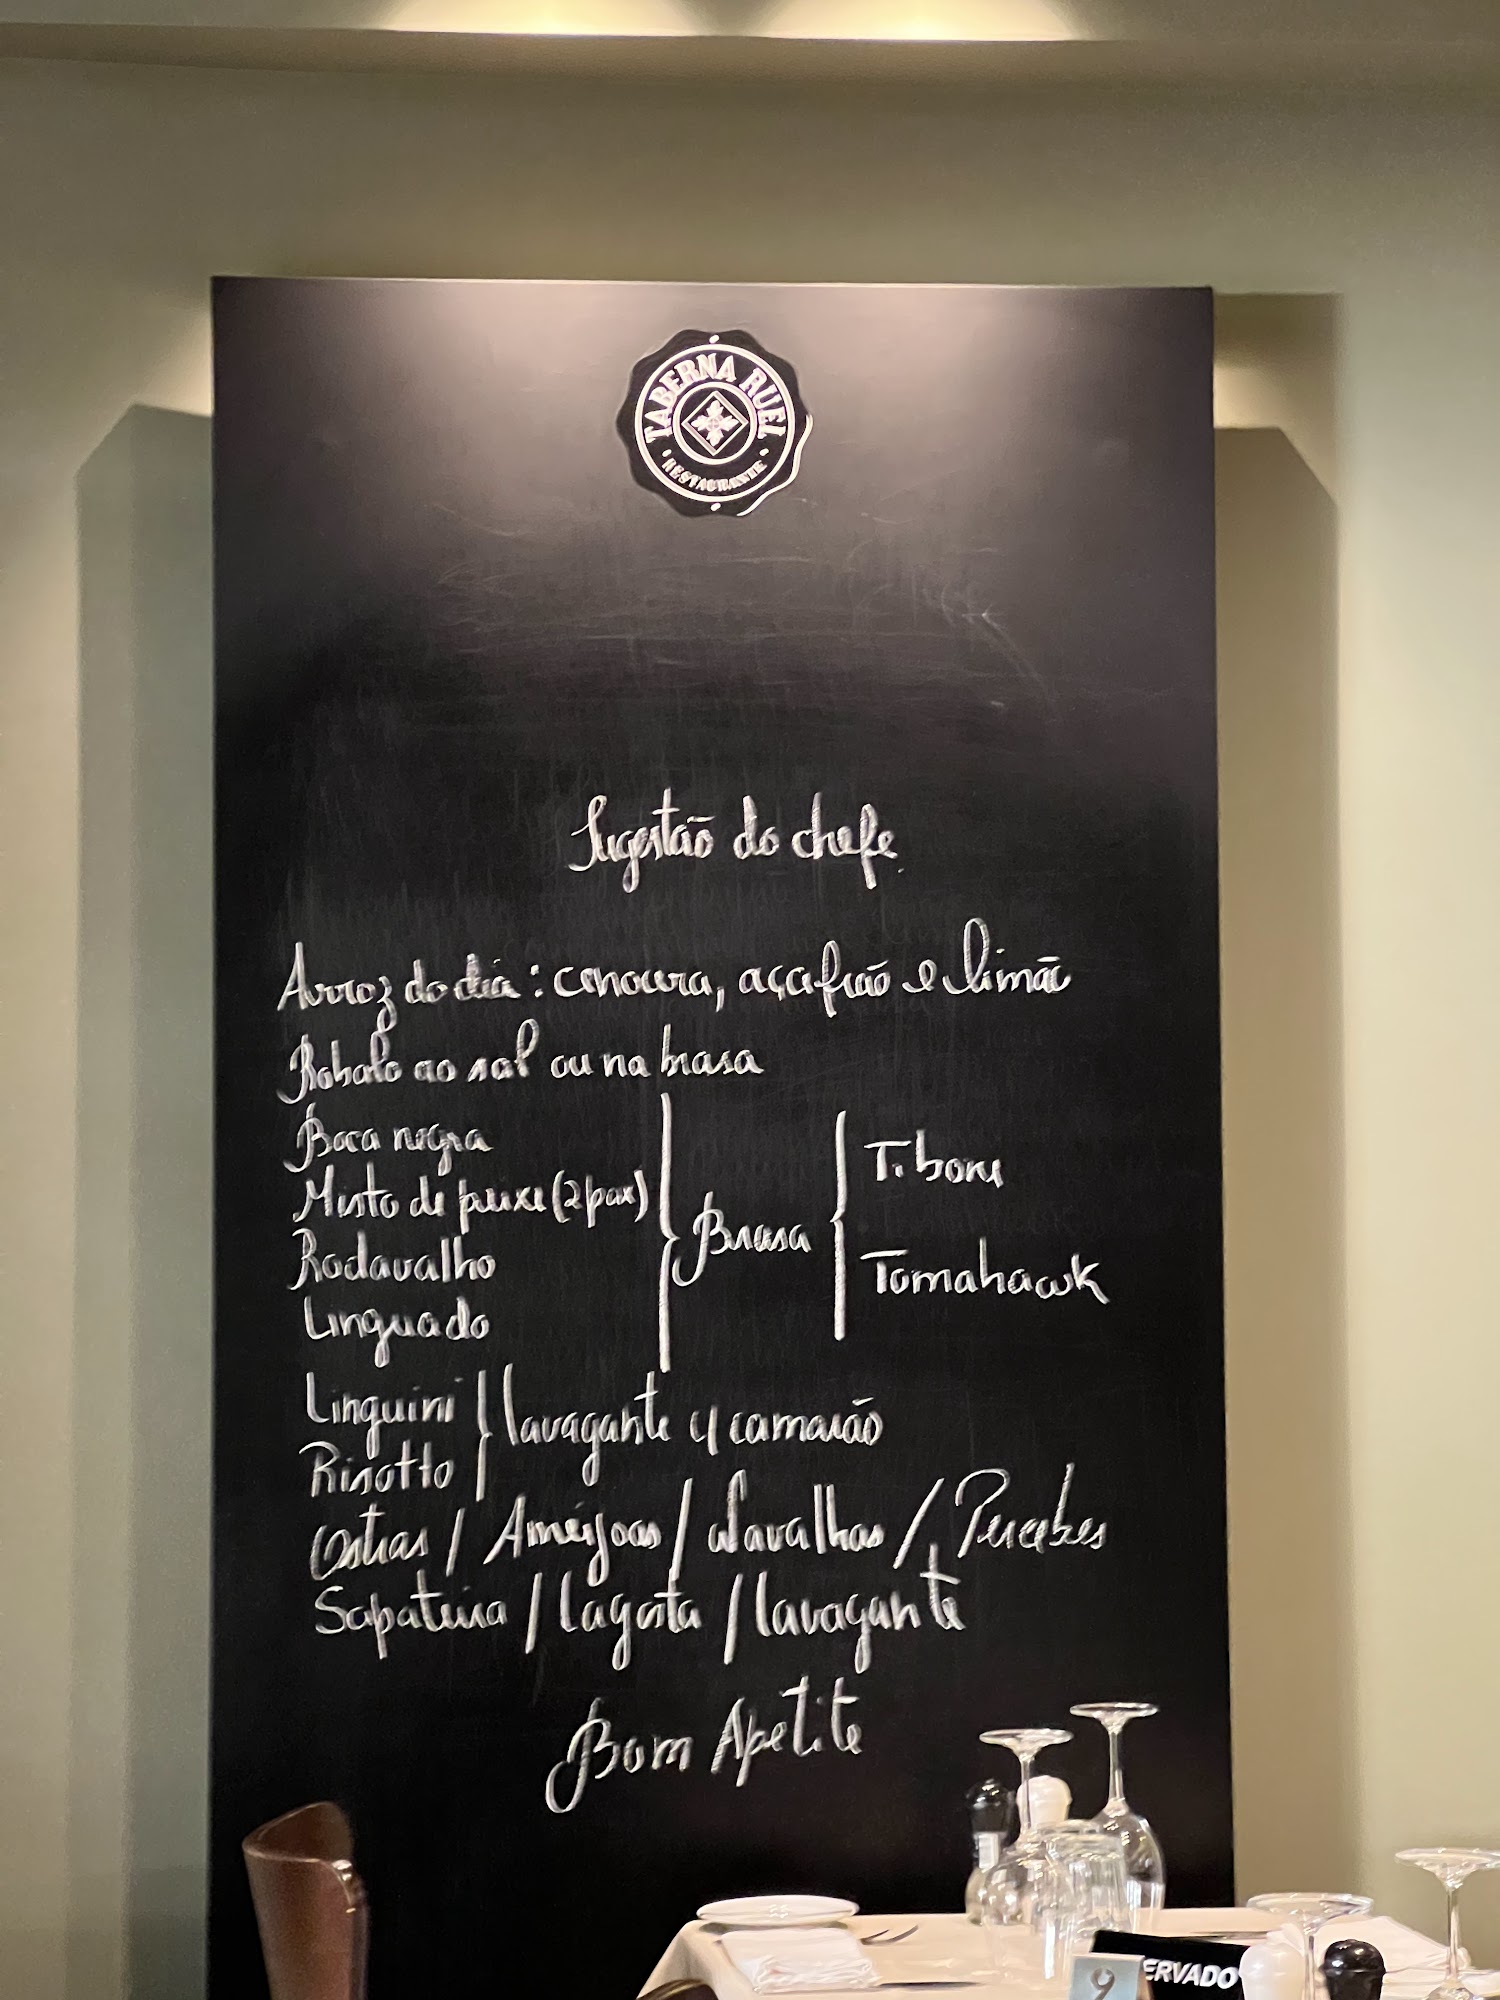 TABERNA RUEL
RESTAURANTE
Sugestão do chefe
Arroz do dia: cenoura, açafrão e limão
Robalo ao sal ou na brasa
Boca negra
Misto de peixe (2 pax)
Rodavalho
Linguado
Brasa
T. bone
Tomahawk
Linguini
Risotto
lavagante c/ camarão
Ostras / Amêijoas / Navalhas / Percebes
Sapateira / Lagosta / lavagante
Bom Apetite
9
ERVADO